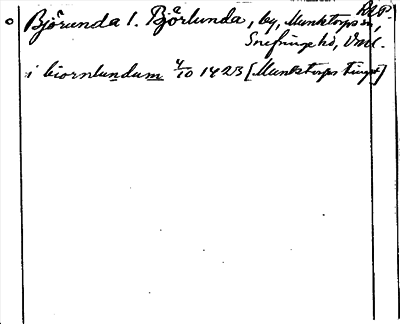 RAP.
Björunda l. Björlunda, by, Munktorps sn,
Snefringe hd, Vml.
i biornlundum 4/10 1423 [Munktorps tingst]